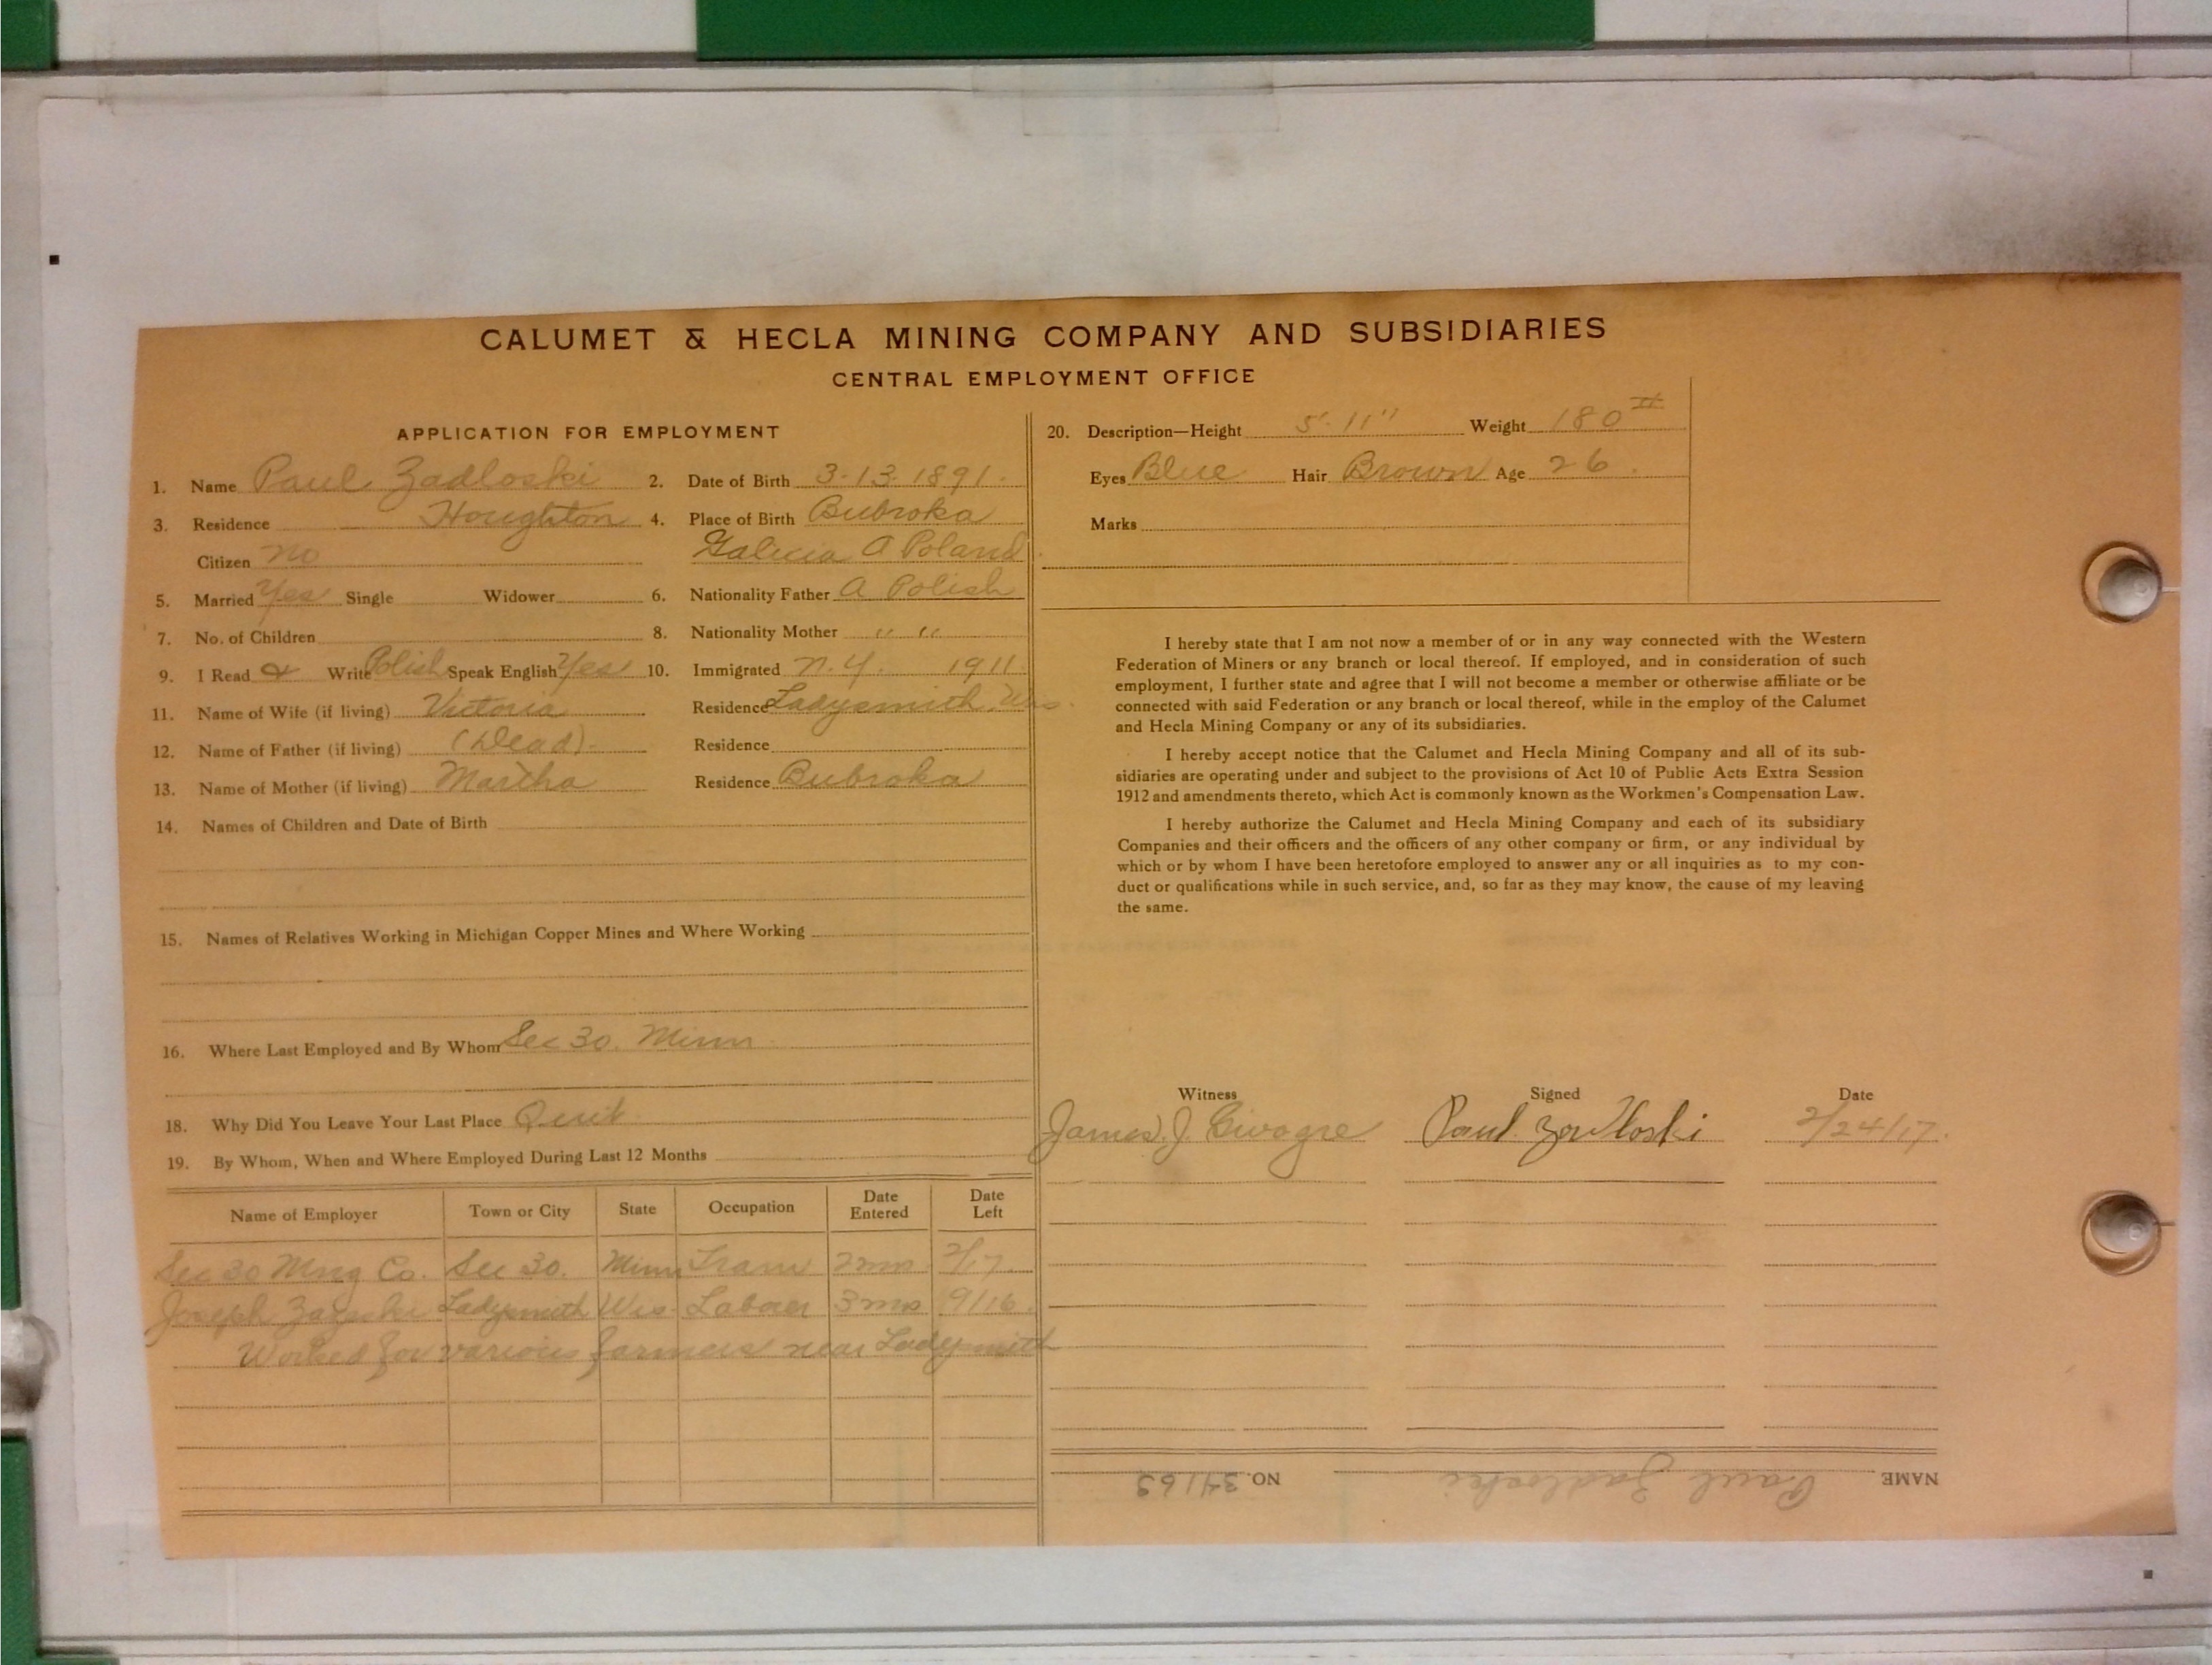 CALUMET & HECLA MINING COMPANY AND SUBSIDIARIES
CENTRAL EMPLOYMENT OFFICE
APPLICATION FOR EMPLOYMENT
1. Name Paul Zadloski 2. Date of Birth 3-13-1891.
3. Residence Houghton 4. Place of Birth Bubroka
Citizen no Galicia A Poland
5. Married Yes Single Widower 6. Nationality Father A Polish
7. No. of Children 8. Nationality Mother " "
9. I Read & Write Polish Speak English Yes 10. Immigrated N.Y. 1911.
11. Name of Wife (if living) Victoria Residence Ladysmith, Wis.
12. Name of Father (if living) (Dead). Residence
13. Name of Mother (if living) Martha Residence Bubroka
14. Names of Children and Date of Birth
15. Names of Relatives Working in Michigan Copper Mines and Where Working
16. Where Last Employed and By Whom Sec 30. Minn
18. Why Did You Leave Your Last Place Quit
19. By Whom, When and Where Employed During Last 12 Months
Name of Employer Town or City State Occupation Date Entered Date Left
Sec 30 Mng Co. Sec 30. Minn Tram 2 mos 2/17.
Joseph Ladysmith Wis Laborer 3 mos 9/16.
Worked for various farmers near Ladysmith
20. Description—Height 5' 11" Weight 180 #
Eyes Blue Hair Brown Age 26.
Marks
I hereby state that I am not now a member of or in any way connected with the Western
Federation of Miners or any branch or local thereof. If employed, and in consideration of such
employment, I further state and agree that I will not become a member or otherwise affiliate or be
connected with said Federation or any branch or local thereof, while in the employ of the Calumet
and Hecla Mining Company or any of its subsidiaries.
I hereby accept notice that the Calumet and Hecla Mining Company and all of its sub-
sidiaries are operating under and subject to the provisions of Act 10 of Public Acts Extra Session
1912 and amendments thereto, which Act is commonly known as the Workmen's Compensation Law.
I hereby authorize the Calumet and Hecla Mining Company and each of its subsidiary
Companies and their officers and the officers of any other company or firm, or any individual by
which or by whom I have been heretofore employed to answer any or all inquiries as to my con-
duct or qualifications while in such service, and, so far as they may know, the cause of my leaving
the same.
Witness Signed Date
James. J. Paul Zadloski 2/24/17.
NAME Paul Zadloski NO. 34163